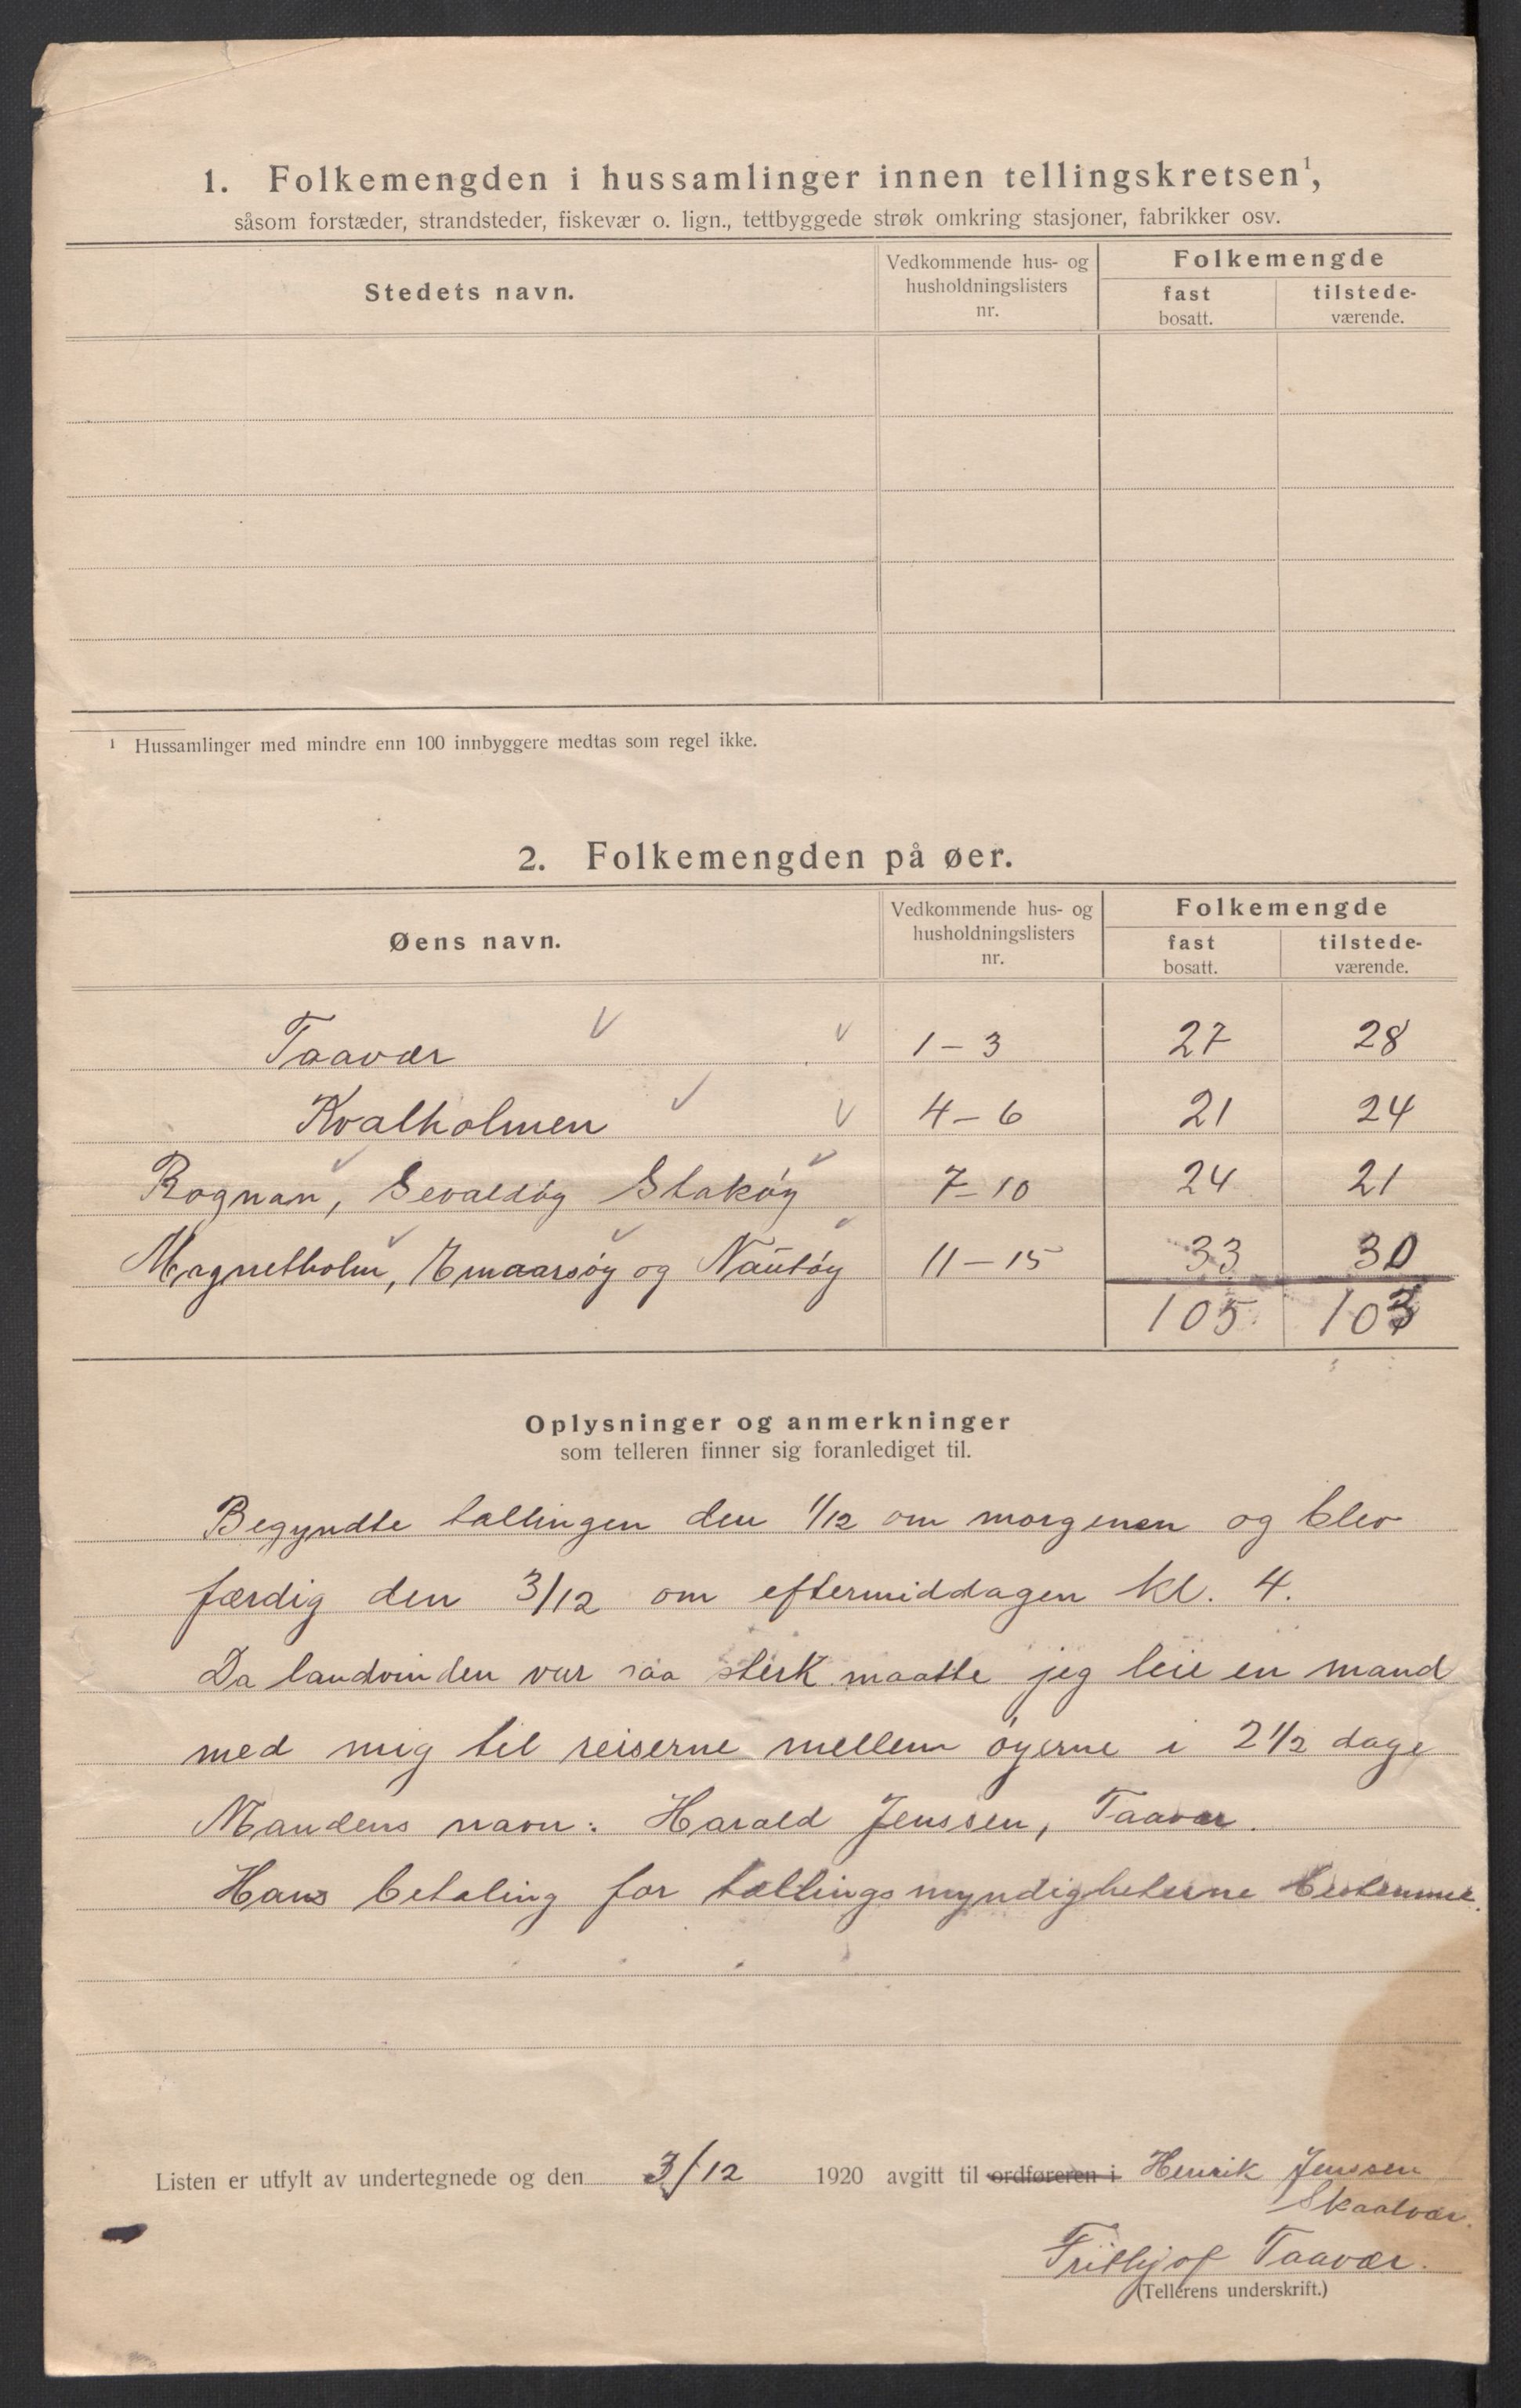 1. Folkemengden i hussamlinger innen tellingskretsen¹,
såsom forstæder, strandsteder, fiskevær o. lign., tettbyggede strøk omkring stasjoner, fabrikker osv.
Stedets navn.
Vedkommende hus- og husholdningslisters nr.
Folkemengde
fast bosatt.
tilstede-værende.
¹ Hussamlinger med mindre enn 100 innbyggere medtas som regel ikke.
2. Folkemengden på øer.
Øens navn.
Vedkommende hus- og husholdningslisters nr.
Folkemengde
fast bosatt.
tilstede-værende.
Taavær 1-3 27 28
Kvalholmen 4-6 21 24
Rognan, Sevaldøy Stakøy 7-10 24 21
Magnetholm, Hmaarsøy og Nautøy 11-15 33 30
105 103
Oplysninger og anmerkninger
som telleren finner sig foranlediget til.
Begyndte tællingen den 1/12 om morgenen og blev
færdig den 3/12 om eftermiddagen kl. 4.
Da landvinden var saa sterk maatte jeg leie en mand
med mig til reiserne mellem øyerne i 2 1/2 dage
Mandens navn: Harald Jenssen, Taavær.
Hans betaling før tællingsmyndigheterne bestemme.
Listen er utfylt av undertegnede og den 3/12 1920 avgitt til ordføreren i Henrik Jenssen
Skaalvær.
Frithjof Taavær.
(Tellerens underskrift.)